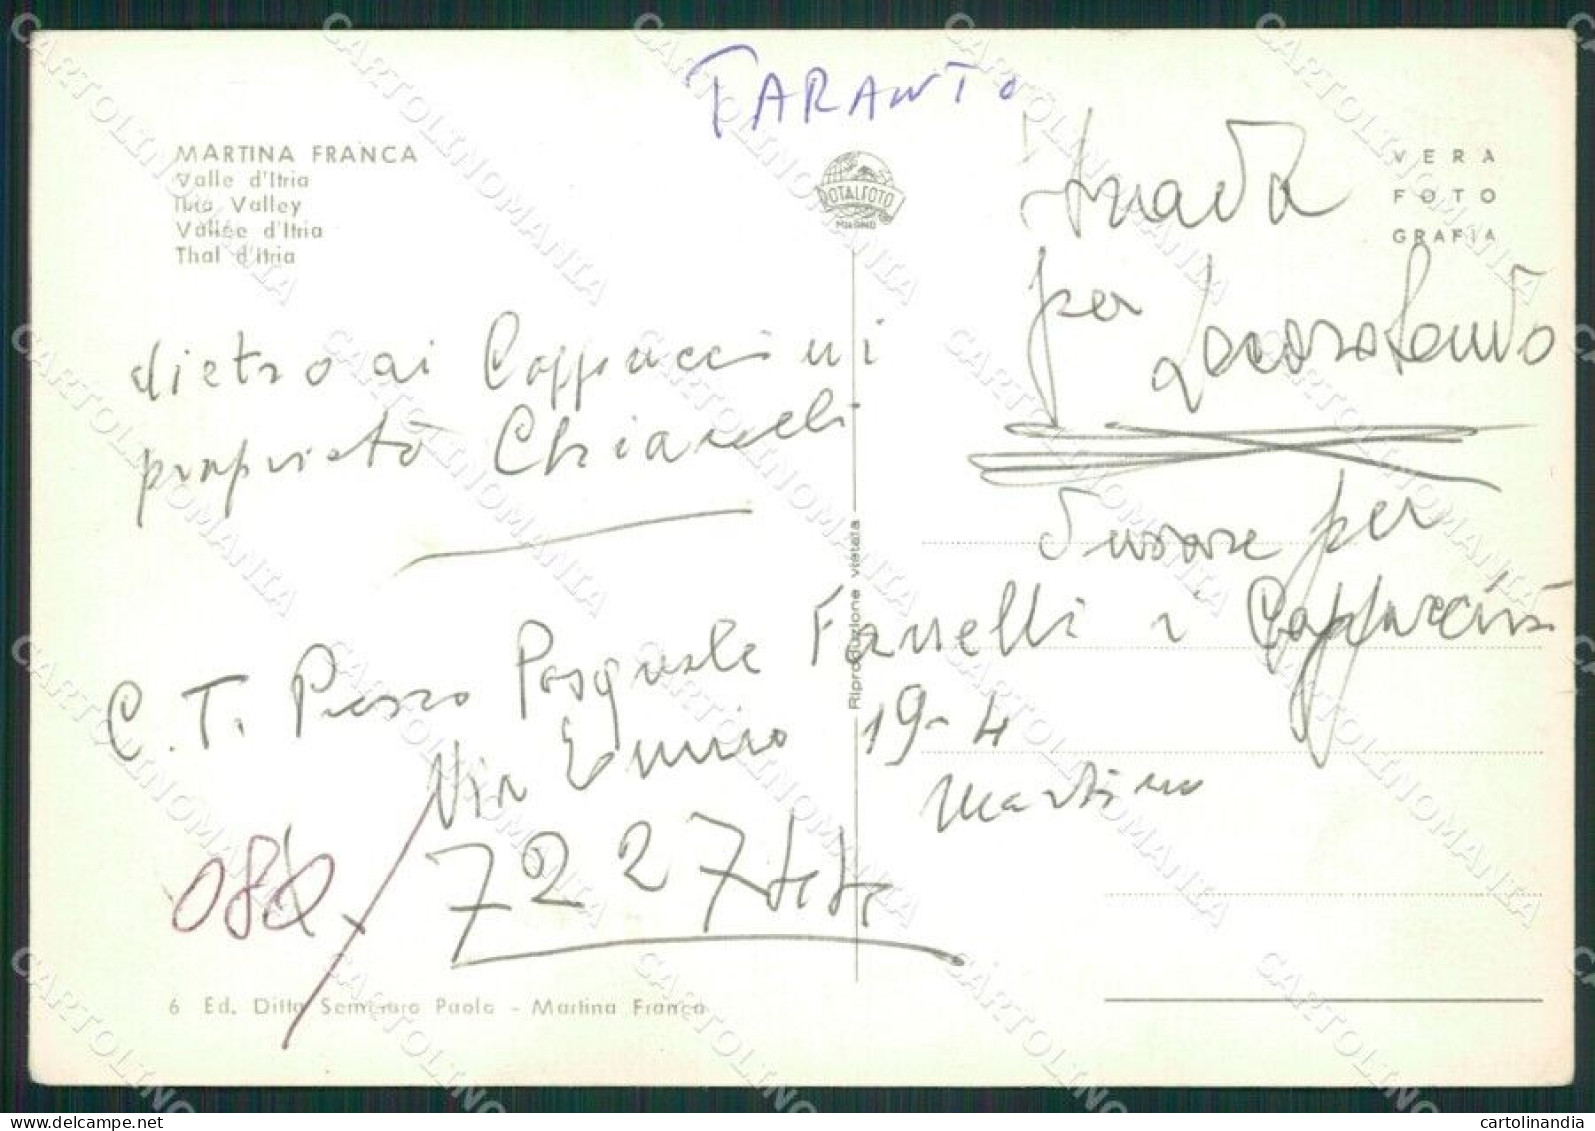 TARANTO
MARTINA FRANCA
Valle d'Itria
Itria Valley
Vallée d'Itria
Thal d'Itria
ROTALFOTO
MILANO
VERA
FOTO
GRAFIA
Strada
per
Locorotondo
dietro ai Cappuccini
proprietà Chiarelli
per
i Cappuccini
C. T. Presso Pasquale Fanelli
Via Ennio 19-4
Martina
080/7227
Riproduzione vietata
6 Ed. Ditta Semeraro Paolo - Martina Franca
CARTOLINOMANIA
cartolinandia